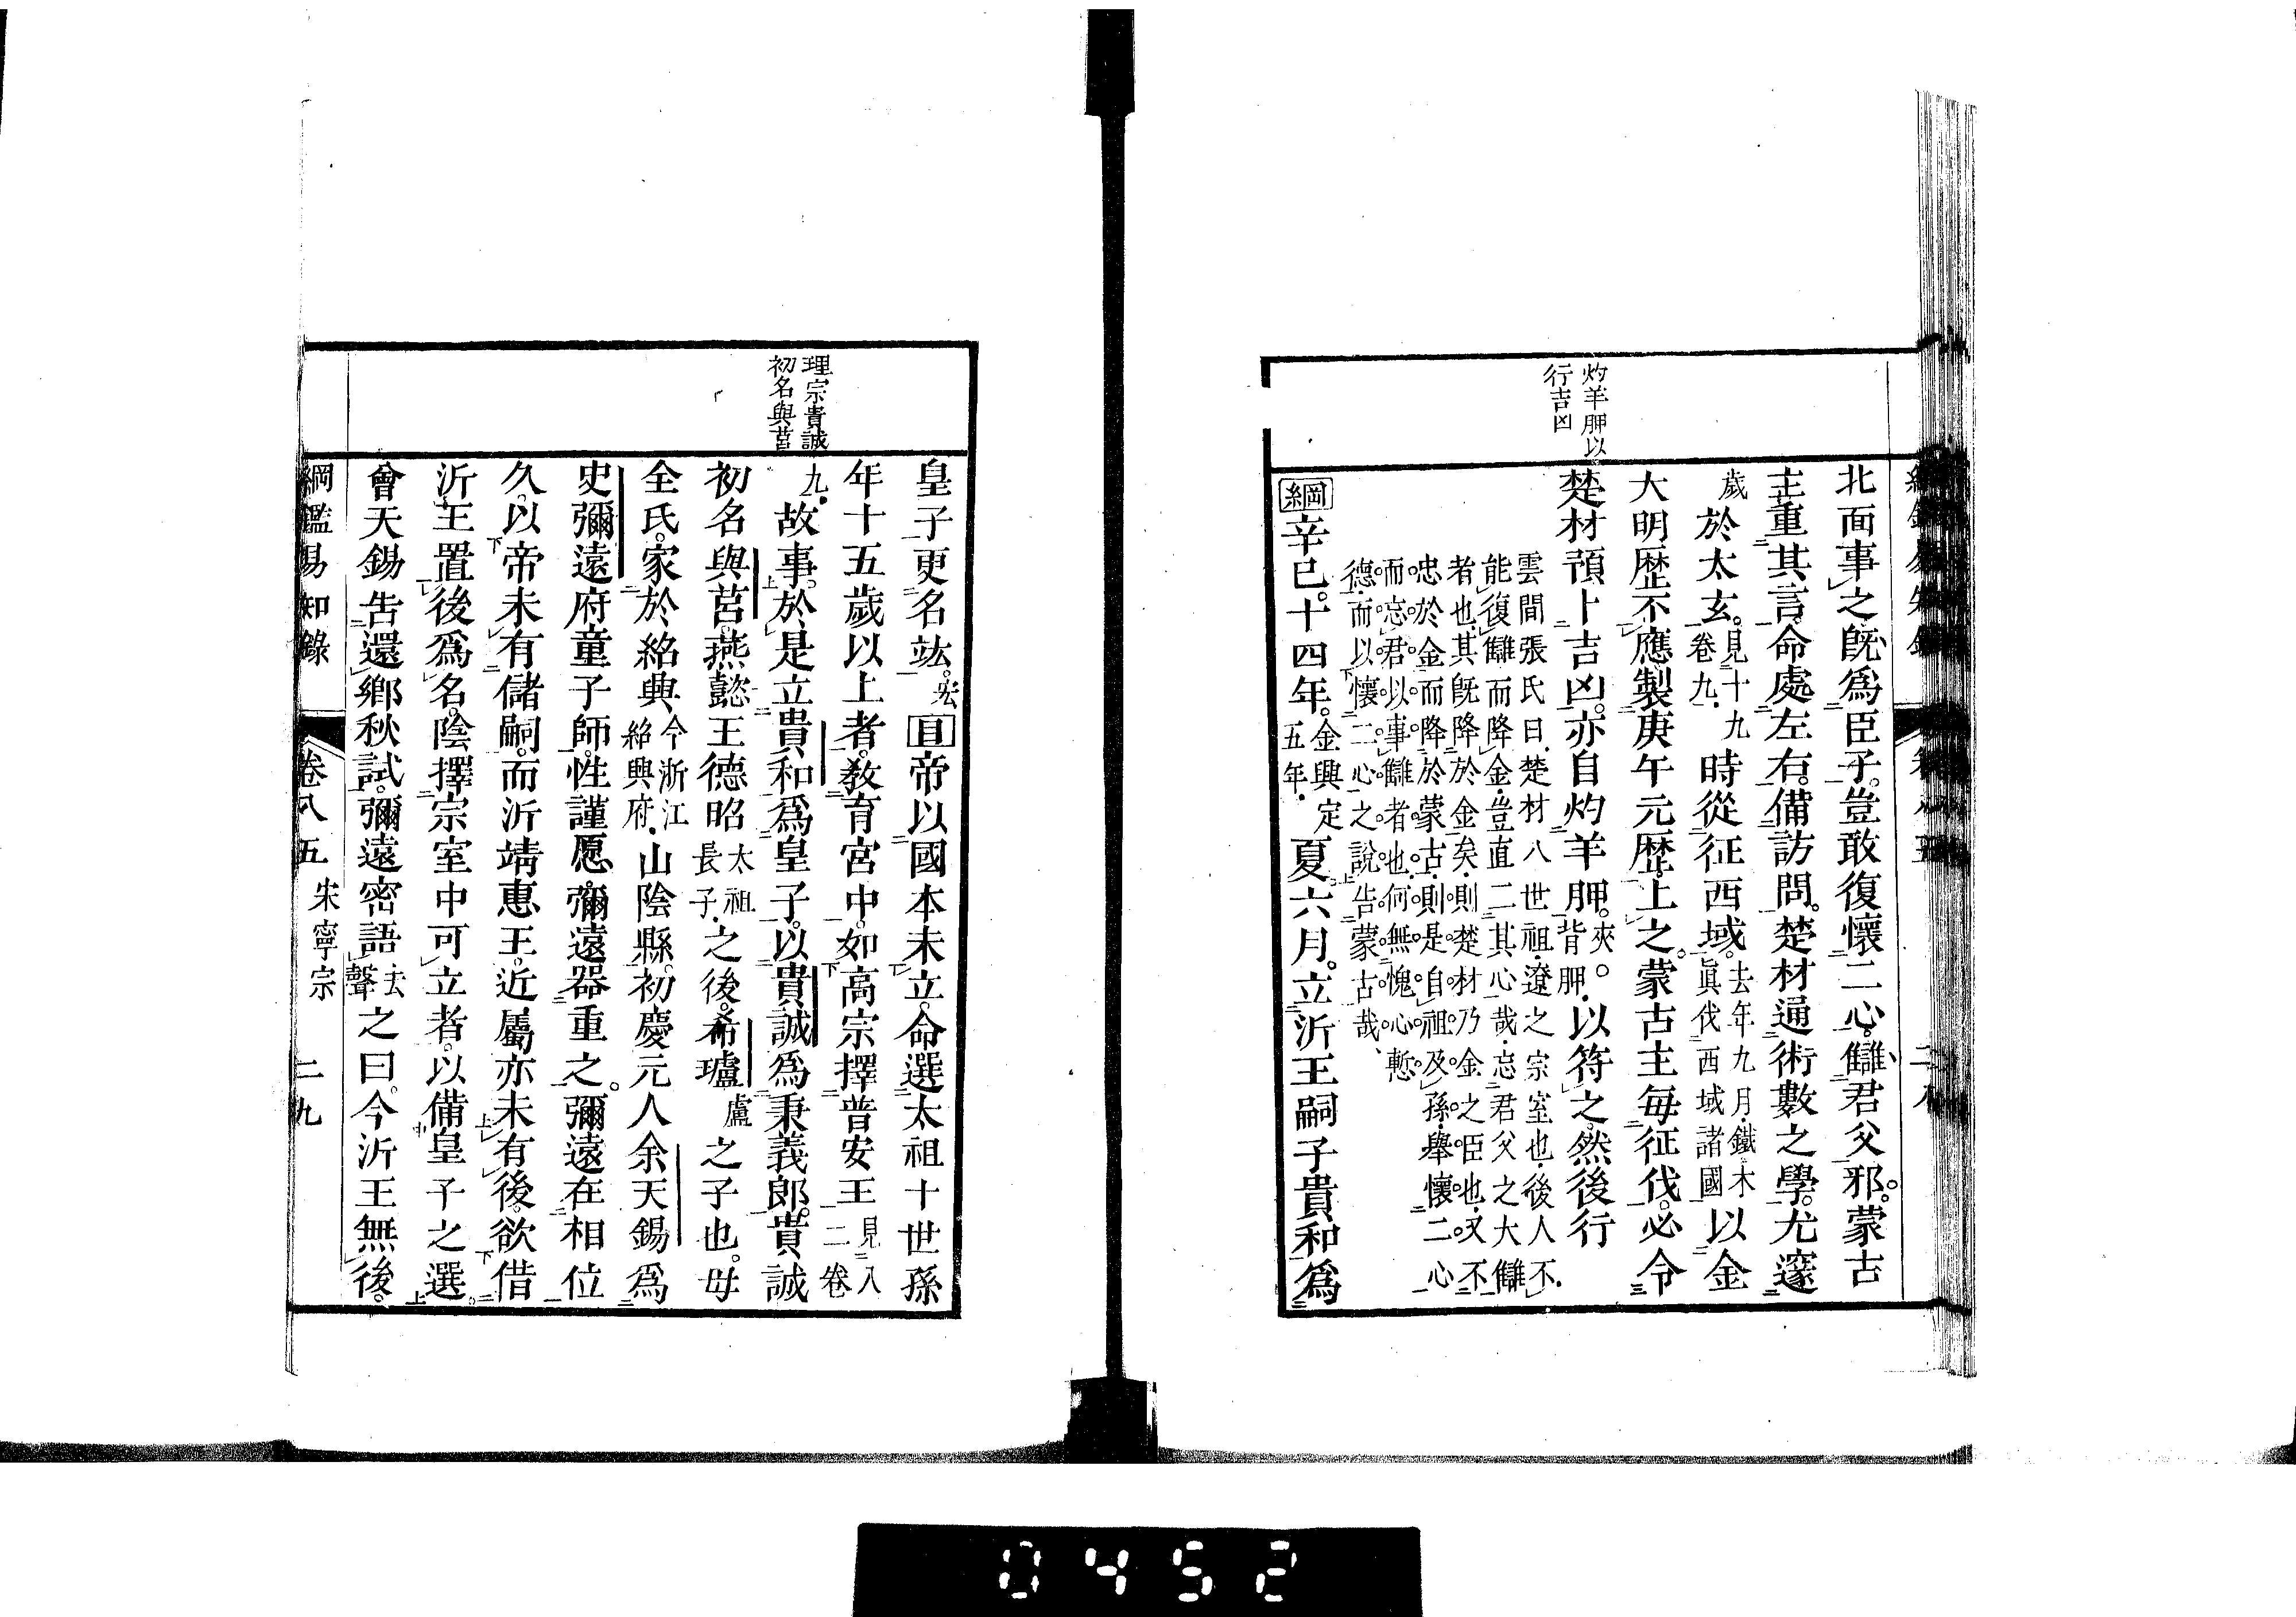 北面事之既爲臣子。豈敢復懷二心。讎君父邪。蒙古
主重其言。命處左右。備訪問。楚材通術數之學。尤邃
於太玄。見十九卷九歲時從征西域。去年九月。鐵木眞伐西域諸國以金
大明歷不應製庚午元歷。上之。蒙古主每征伐。必令
楚材預卜吉凶。亦自灼羊胛。夾。背胛。以符之。然後行
雲間張氏曰。楚材八世祖。遼之宗室也。後人不
能復讎而降金。豈直二其心哉。忘君父之大讎
者也。其既降於金矣。則楚材乃金之臣也。又不
忠於金。而降於蒙古。則是自祖及孫。舉懷二心
而忘君以事讎者也。何無愧心慙
德。而以懷二心之說告蒙古哉、
綱辛巳。十四年。金興定五年。夏六月。立沂王嗣子貴和爲
灼羊胛以
行吉凶
皇子更名竑。宏目帝以國本未立。命選太祖十世孫
年十五歲以上者。敎育宮中。如高宗擇普安王見八二卷
九。故事。於是立貴和爲皇子。以貴誠爲秉義郞。貴誠
初名與莒。燕懿王德昭太祖長子。之後。希瓐盧之子也。母
全氏。家於紹興今浙江紹興府。山陰縣。初慶元人余天錫爲
史彌遠府童子師。性謹愿。彌遠器重之。彌遠在相位
久。以帝未有儲嗣。而沂靖惠王。近屬亦未有後。欲借
沂王置後爲名。陰擇宗室中可立者。以備皇子之選。
會天錫告還鄕秋試。彌遠密語去聲之曰。今沂王無後。
理宗貴誠
初名與莒
綱鑑易知錄 卷八五 宋寧宗 二九
0452